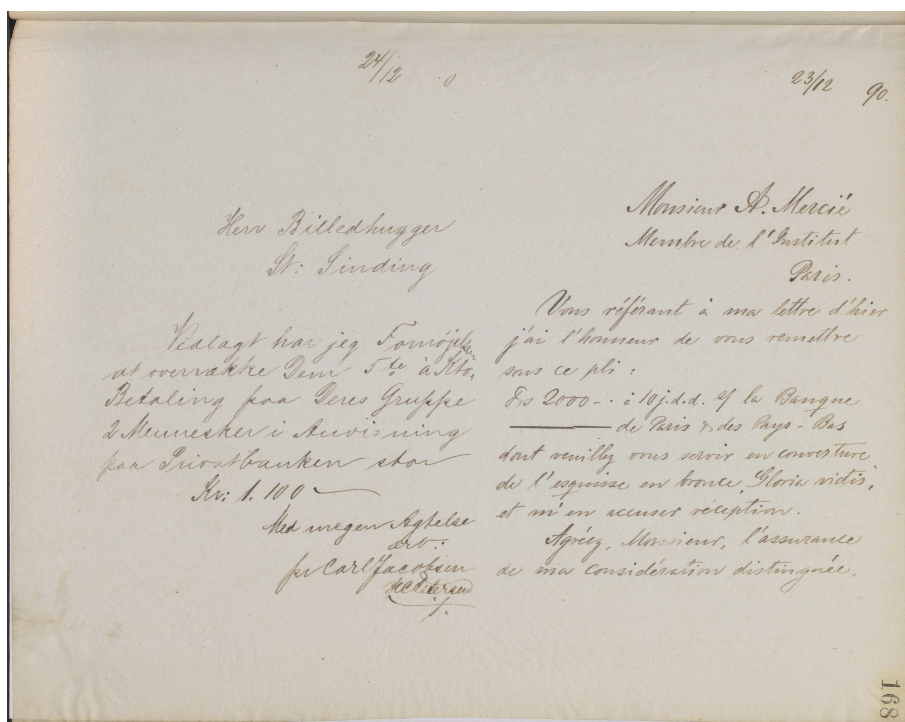 24/12 0
Herr Billedhugger
St: Sinding
Vedlagt har jeg Fornøjelsen
at overrække Dem 5te à Kto.
Betaling paa Deres Gruppe
2 Mennesker i Anvisning
paa Privatbanken stor
Kr: 1.100 —
Med megen Agtelse
ærb:
pr Carl Jacobsen
HCPetersen
23/12 90.
Monsieur A. Mercié
Membre de l'Institut
Paris.
Vous référant à ma lettre d'hier
j'ai l'honneur de vous remettre
sous ce pli:
Frs 2000 - . à 10 j.d.d. s/ la Banque
——— de Paris & des Pays-Bas
dont veuillez vous servir en couverture
de l'esquisse en bronce „Gloria victis”,
et m'en accuser réception.
Agréez, Monsieur, l'assurance
de ma considération distinguée.
168